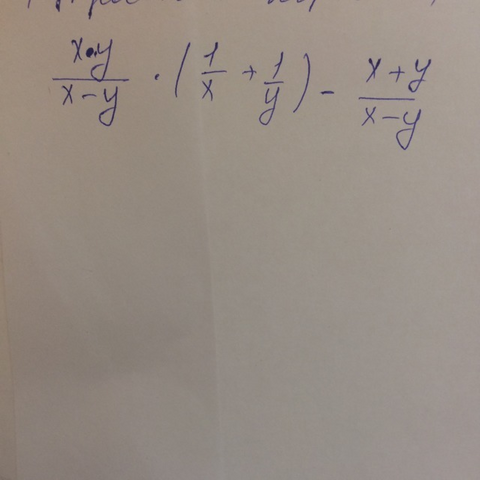 x•y/x−y · (1/x + 1/y) − x+y/x−y